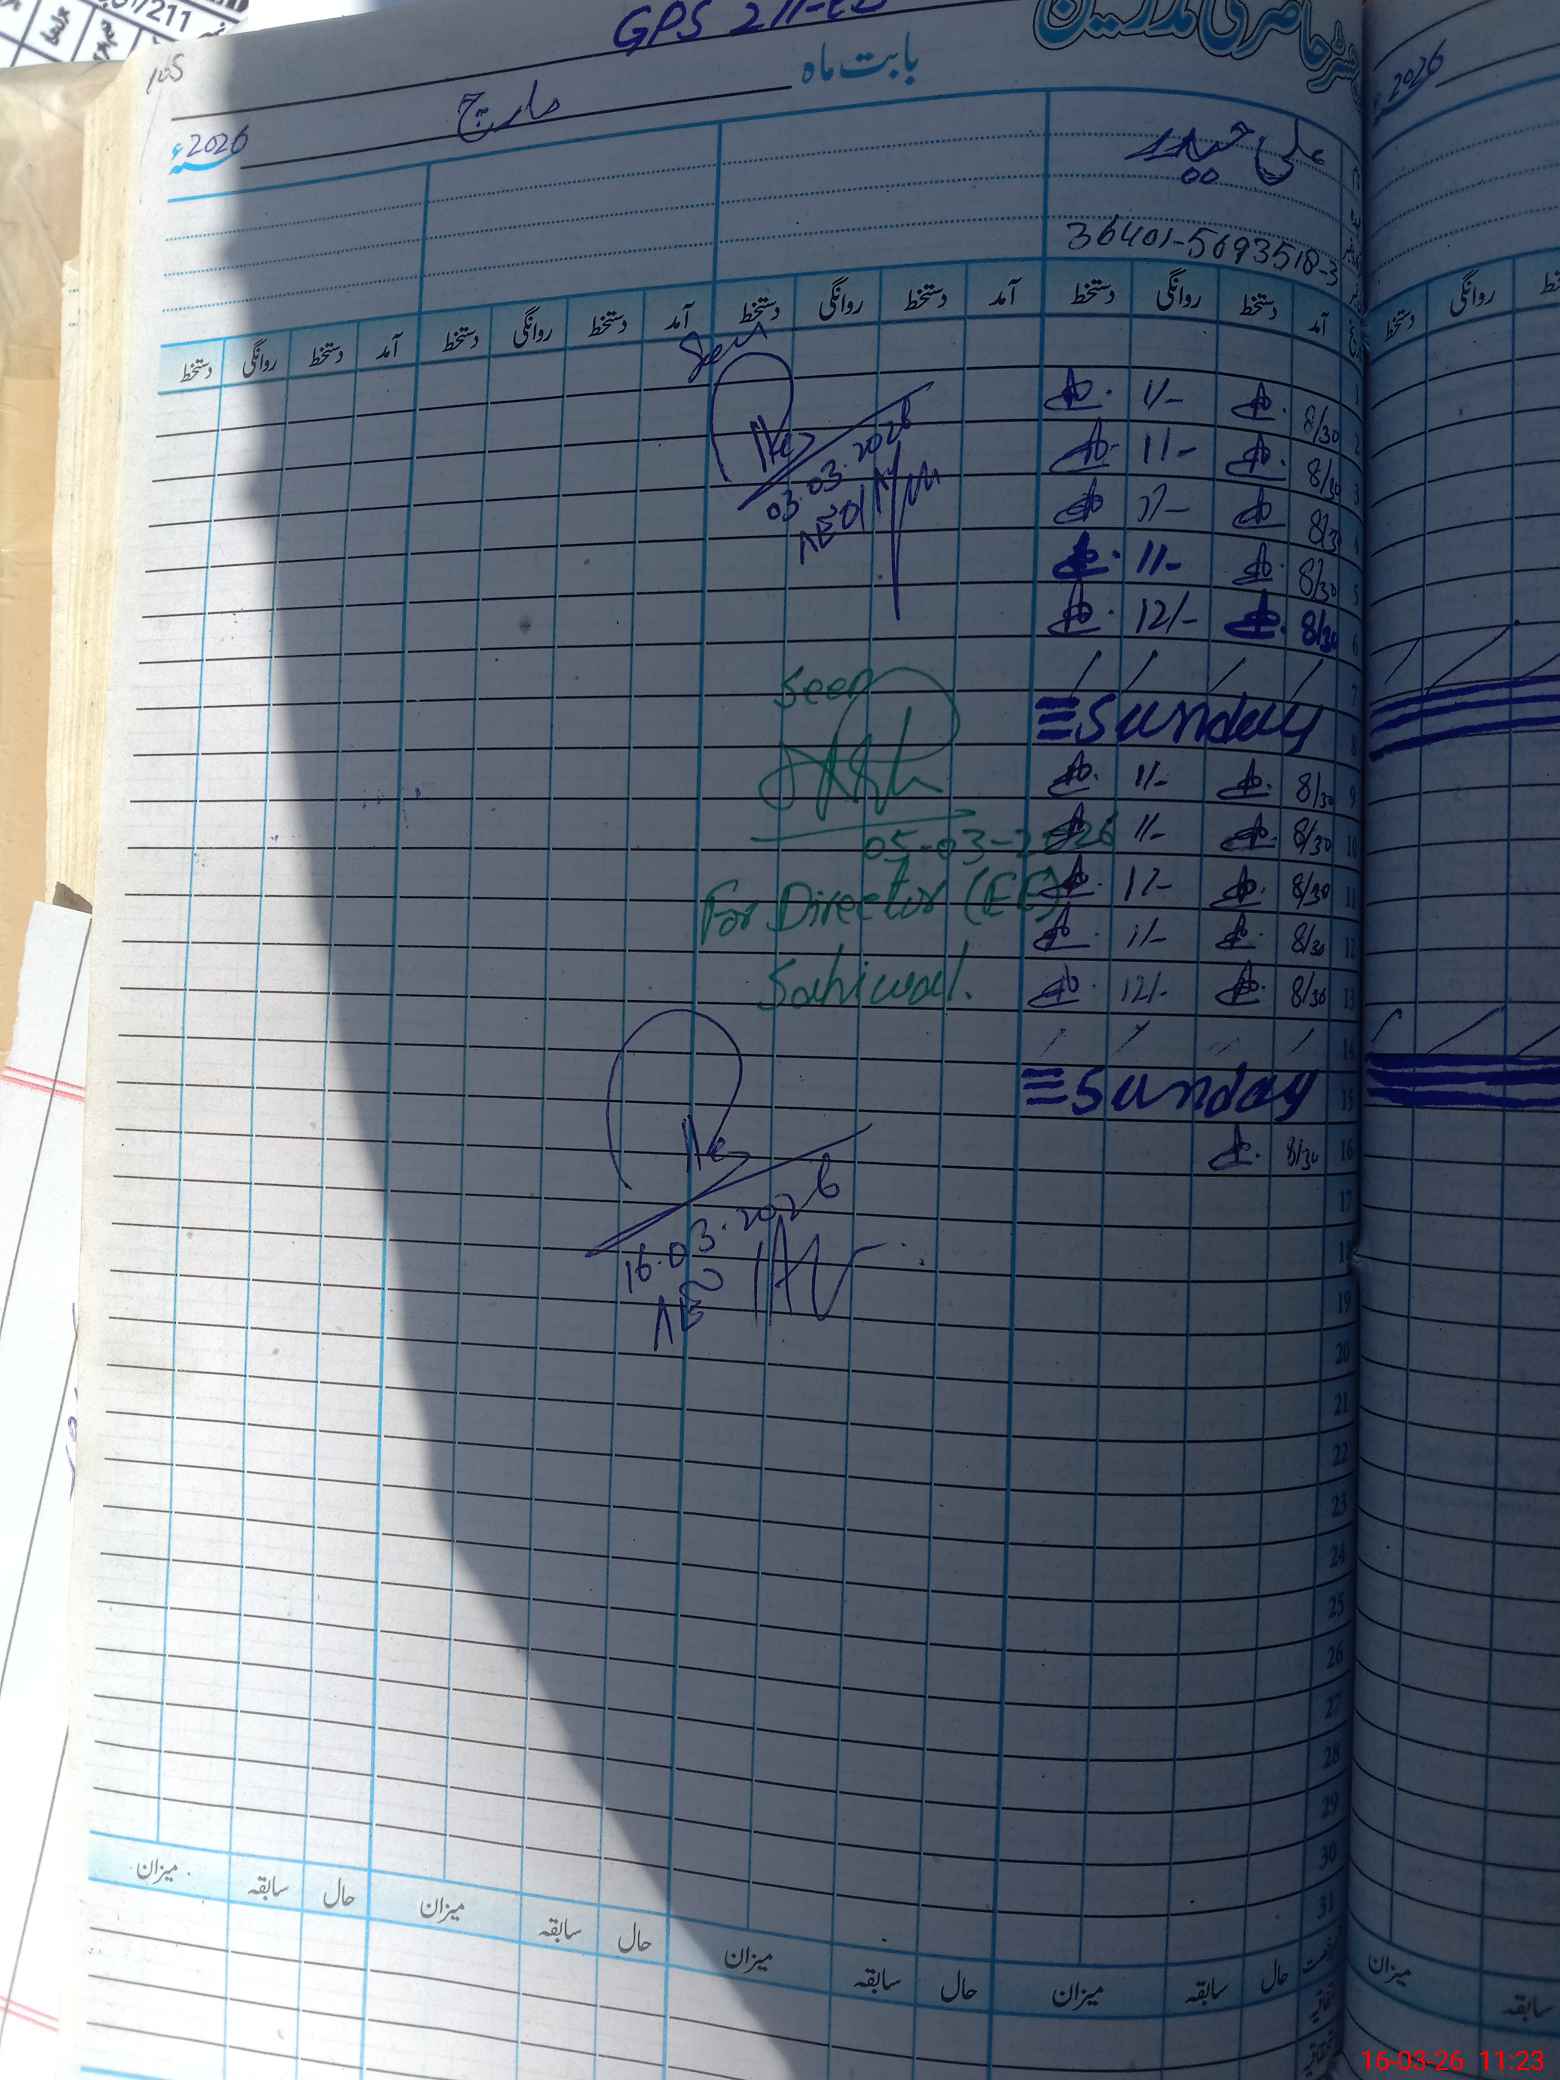 105
GPS 211-EB
رجسٹر حاضری مدرسین
بابت ماہ
مارچ
2026ء
علی حیدر
36401-5693518-3
آمد دستخط روانگی دستخط آمد دستخط روانگی دستخط آمد دستخط روانگی دستخط آمد دستخط روانگی دستخط
1
2 8/30 11/-
3 8/30 11/-
4 8/30 11/-
5 8/30 11/-
6 8/30 12/-
7
8 Sunday
9 8/30 11/-
10 8/30 11/-
11 8/30 11/-
12 8/30 11/-
13 8/30 12/-
14
15 Sunday
16 8/30
17
18
19
20
21
22
23
24
25
26
27
28
29
30
31
Seen
03.03.2026
AEO
Seen
05-03-2026
For Director (EE)
Sahiwal.
16.03.2026
حال سابقہ میزان حال سابقہ میزان حال سابقہ میزان حال سابقہ میزان
2026ء
روانگی دستخط
میزان
سابقہ
16-03-26 11:23